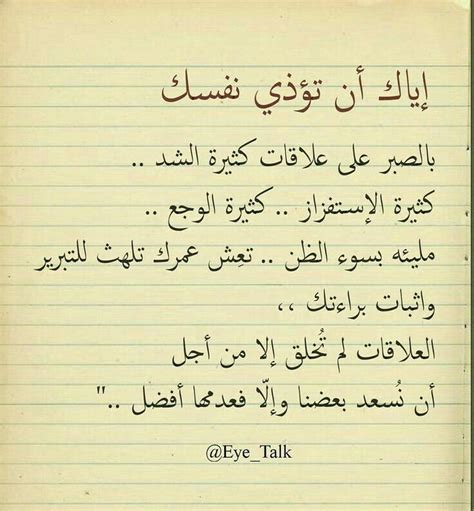 إياك أن تؤذي نفسك
بالصبر على علاقات كثيرة الشد ..
كثيرة الإستفزاز .. كثيرة الوجع ..
مليئه بسوء الظن .. تعِش عمرك تلهث للتبرير
واثبات براءتك ،،
العلاقات لم تُخلق إلا من أجل
أن نُسعد بعضنا وإلّا فعدمها أفضل .."
@Eye_Talk